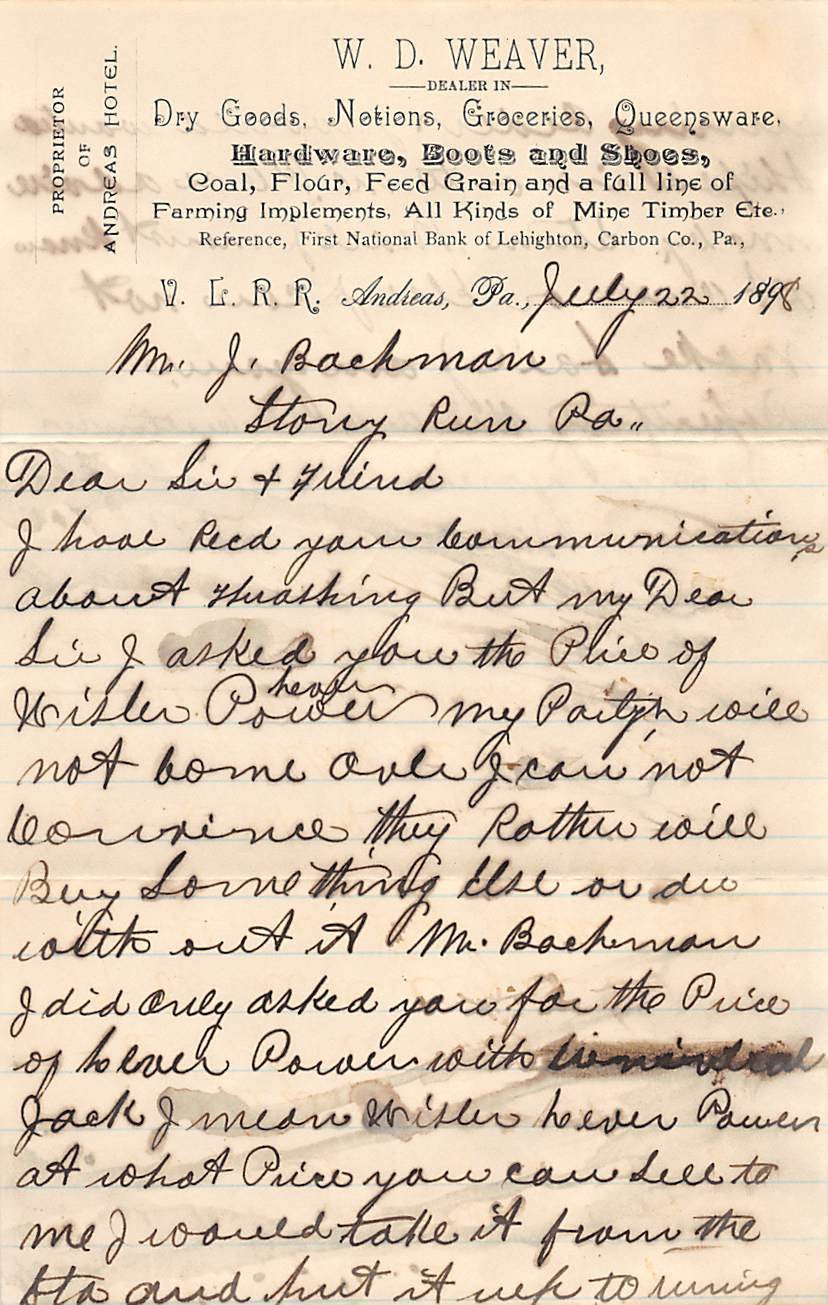 PROPRIETOR
OF
ANDREAS HOTEL.
W. D. WEAVER,
DEALER IN
Dry Goods, Notions, Groceries, Queensware,
Hardware, Boots and Shoes,
Coal, Flour, Feed Grain and a full line of
Farming Implements, All Kinds of Mine Timber Etc.,
Reference, First National Bank of Lehighton, Carbon Co., Pa.,
V. L. R. R. Andreas, Pa., July 22 1898
Mr. J. Bachman
Stony Run Pa,,
Dear Sir & Friend
I have Recd your Communications
about thrashing But my Dear
Sir I asked you the Price of
lever
Wisler Power my will
not Come Over I can not
Convince they Rather will
Buy Something Else or du
with out it Mr. Bachman
I did only asked you for the Price
of Lever Power with
Jack I mean Wisler Lever Power
at what Price you can Sell to
me I would take it from the
Sta and put it up to runing